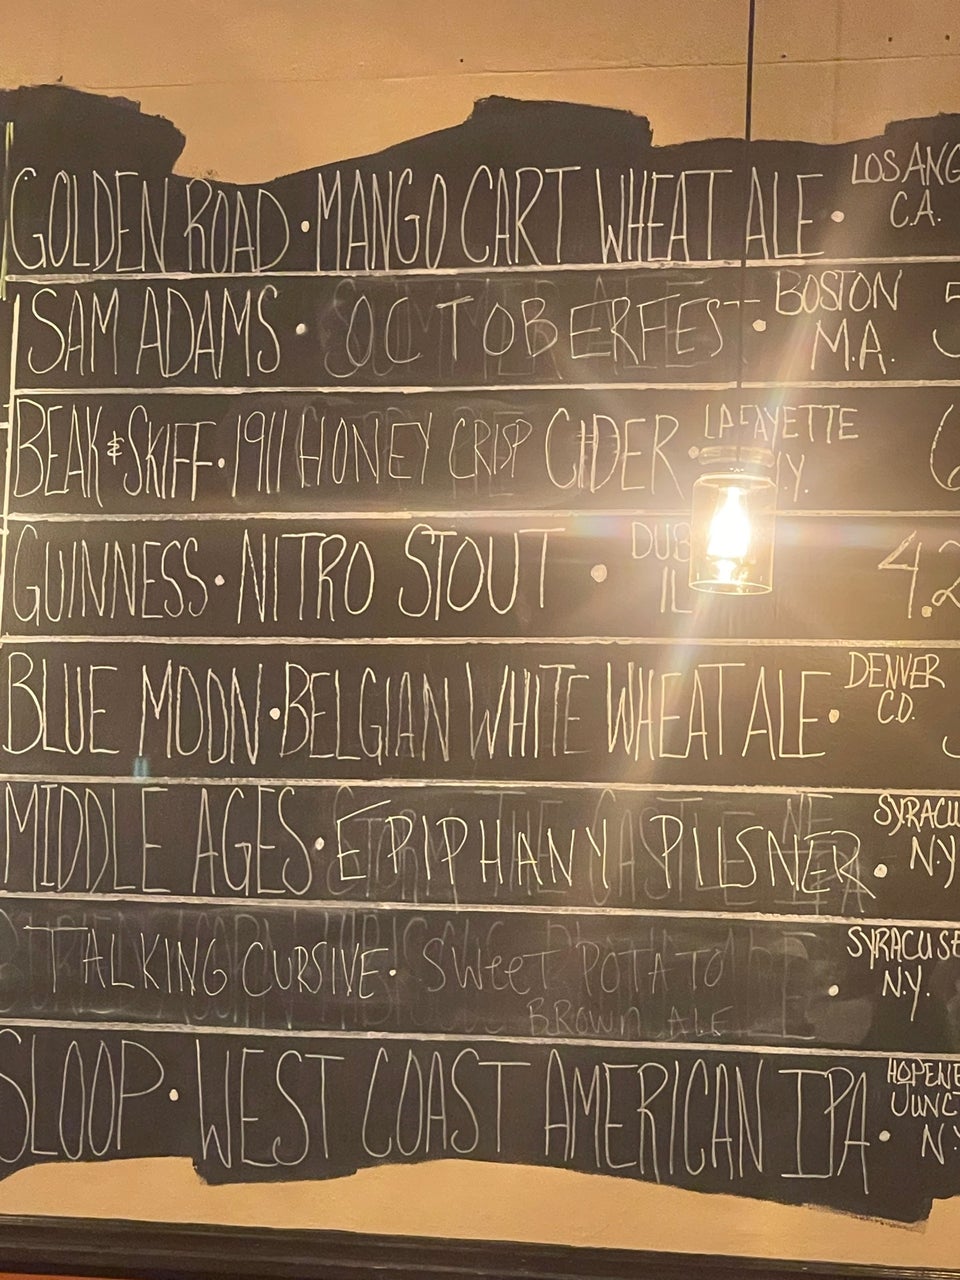 GOLDEN ROAD • MANGO CART WHEAT ALE •
LOS ANG
C.A.
SAM ADAMS • OCTOBERFEST •
BOSTON
M.A.
5
BEAK & SKIFF • 1911 HONEY CRISP CIDER •
LAFAYETTE
N.Y.
6
GUINNESS • NITRO STOUT •
DUB
IL
4.2
BLUE MOON • BELGIAN WHITE WHEAT ALE •
DENVER
C.O.
MIDDLE AGES • EPIPHANY PILSNER •
SYRACU
N.Y
TALKING CURSIVE • SWEET POTATO
BROWN ALE •
SYRACUSE
N.Y.
SLOOP • WEST COAST AMERICAN IPA •
HOPEWE
JUNCT
N.Y